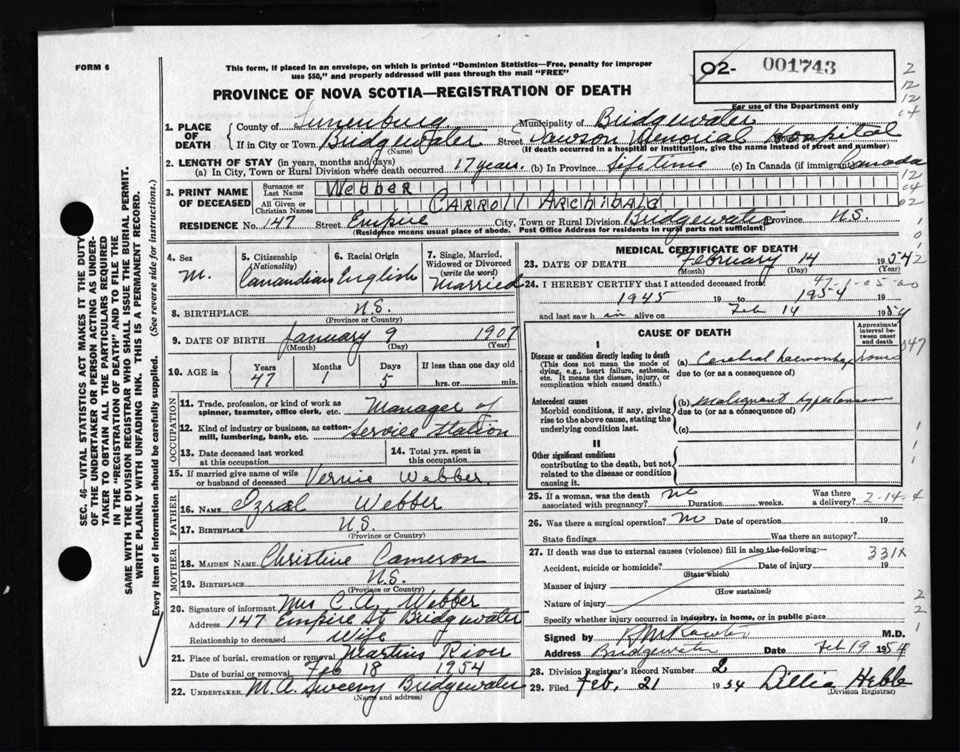 FORM 6
This form, if placed in an envelope, on which is printed "Dominion Statistics—Free, penalty for improper
use $50," and properly addressed will pass through the mail "FREE"
02- 001743
For use of the Department only
PROVINCE OF NOVA SCOTIA—REGISTRATION OF DEATH
1. PLACE OF DEATH
County of Lunenburg Municipality of Bridgewater
If in City or Town Bridgewater Street Dawson Memorial Hospital
(Name) (If death occurred in a hospital or institution, give the name instead of street and number)
2. LENGTH OF STAY (in years, months and days)
(a) In City, Town or Rural Division where death occurred 17 years. (b) In Province Lifetime (c) In Canada (if immigrant) Canada
3. PRINT NAME OF DECEASED
Surname or Last Name WEBBER
All Given or Christian Names CARROLL ARCHIBALD
RESIDENCE No. 147 Street Empire City, Town or Rural Division Bridgewater Province N.S.
(Residence means usual place of abode. Post Office Address for residents in rural parts not sufficient)
4. Sex M.
5. Citizenship (Nationality) Canandian
6. Racial Origin English
7. Single, Married, Widowed or Divorced (write the word) Married
8. BIRTHPLACE N.S.
(Province or Country)
9. DATE OF BIRTH January 9 1907
(Month) (Day) (Year)
10. AGE in Years 47 Months 1 Days 5 If less than one day old hrs. or min.
OCCUPATION
11. Trade, profession, or kind of work as spinner, teamster, office clerk, etc. Manager of
12. Kind of industry or business, as cotton-mill, lumbering, bank, etc. Service Station
13. Date deceased last worked at this occupation
14. Total yrs. spent in this occupation
15. If married give name of wife or husband of deceased Vernie Webber
FATHER
16. NAME Izral Webber
17. BIRTHPLACE N.S.
(Province or Country)
MOTHER
18. MAIDEN NAME Christine Cameron
19. BIRTHPLACE N.S.
(Province or Country)
20. Signature of informant Mrs C. A. Webber
Address 147 Empire St Bridgewater
Relationship to deceased Wife
21. Place of burial, cremation or removal Martins River
Date of burial or removal Feb 18 1954
22. UNDERTAKER M. A. Sweeny Bridgewater
(Name and address)
MEDICAL CERTIFICATE OF DEATH
23. DATE OF DEATH February 14 1954
(Month) (Day) (Year)
24. I HEREBY CERTIFY that I attended deceased from
1945 19 to 1954 19
and last saw h im alive on Feb 14 1954
CAUSE OF DEATH
Approximate interval between onset and death
I
Disease or condition directly leading to death
(This does not mean the mode of dying, e.g., heart failure, asthenia, etc. It means the disease, injury, or complication which caused death.)
(a) Cerebral
due to (or as a consequence of)
Antecedent causes
Morbid conditions, if any, giving rise to the above cause, stating the underlying condition last.
(b) Malignant Hypertension
due to (or as a consequence of)
(c)
II
Other significant conditions
contributing to the death, but not related to the disease or condition causing it.
25. If a woman, was the death associated with pregnancy? Duration weeks. Was there a delivery? 2-14-4
26. Was there a surgical operation? No Date of operation 19
State findings Was there an autopsy?
27. If death was due to external causes (violence) fill in also the following: 331X
Accident, suicide or homicide? Date of injury 19
(State which)
Manner of injury
(How sustained)
Nature of injury
Specify whether injury occurred in industry, in home, or in public place
Signed by M.D.
Address Bridgewater Date Feb 19 1954
28. Division Registrar's Record Number 2
29. Filed Feb. 21 1954 Lillia Hebb
(Division Registrar)
SEC. 46—VITAL STATISTICS ACT MAKES IT THE DUTY
OF THE UNDERTAKER OR PERSON ACTING AS UNDER-
TAKER TO OBTAIN ALL THE PARTICULARS REQUIRED
IN THE "REGISTRATION OF DEATH" AND TO FILE THE
SAME WITH THE DIVISION REGISTRAR WHO SHALL ISSUE THE BURIAL PERMIT.
WRITE PLAINLY WITH UNFADING INK. THIS IS A PERMANENT RECORD.
Every item of information should be carefully supplied. (See reverse side for instructions.)